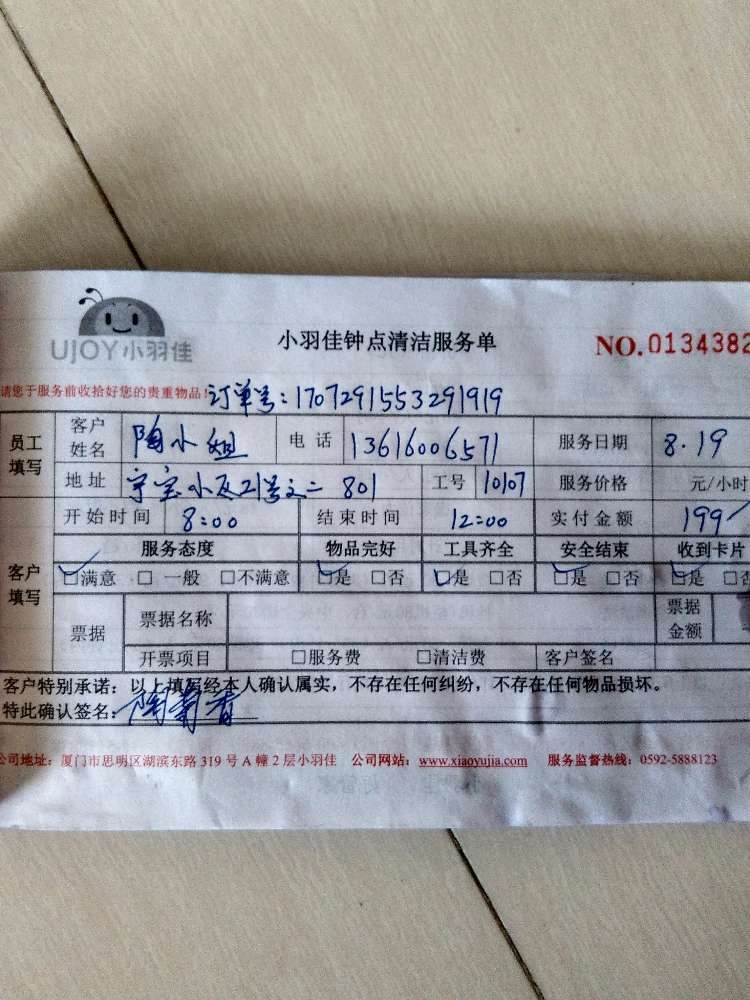 UJOY小羽佳
小羽佳钟点清洁服务单 NO.0134382
请您于服务前收拾好您的贵重物品! 订单号:1707291553291919
员工填写 客户姓名 陶小姐 电话 13616006571 服务日期 8.19
地址 宁宝小区21号之二 801 工号 10107 服务价格 元/小时
开始时间 8:00 结束时间 12:00 实付金额 199
客户填写 服务态度 物品完好 工具齐全 安全结束 收到卡片
☑满意 □一般 □不满意 ☑是 □否 ☑是 □否 ☑是 □否 ☑是
票据 票据名称 票据金额
开票项目 □服务费 □清洁费 客户签名
客户特别承诺:以上填写经本人确认属实,不存在任何纠纷,不存在任何物品损坏。
特此确认签名:
公司地址:厦门市思明区湖滨东路 319 号 A 幢 2 层小羽佳 公司网站:www.xiaoyujia.com 服务监督热线:0592-5888123